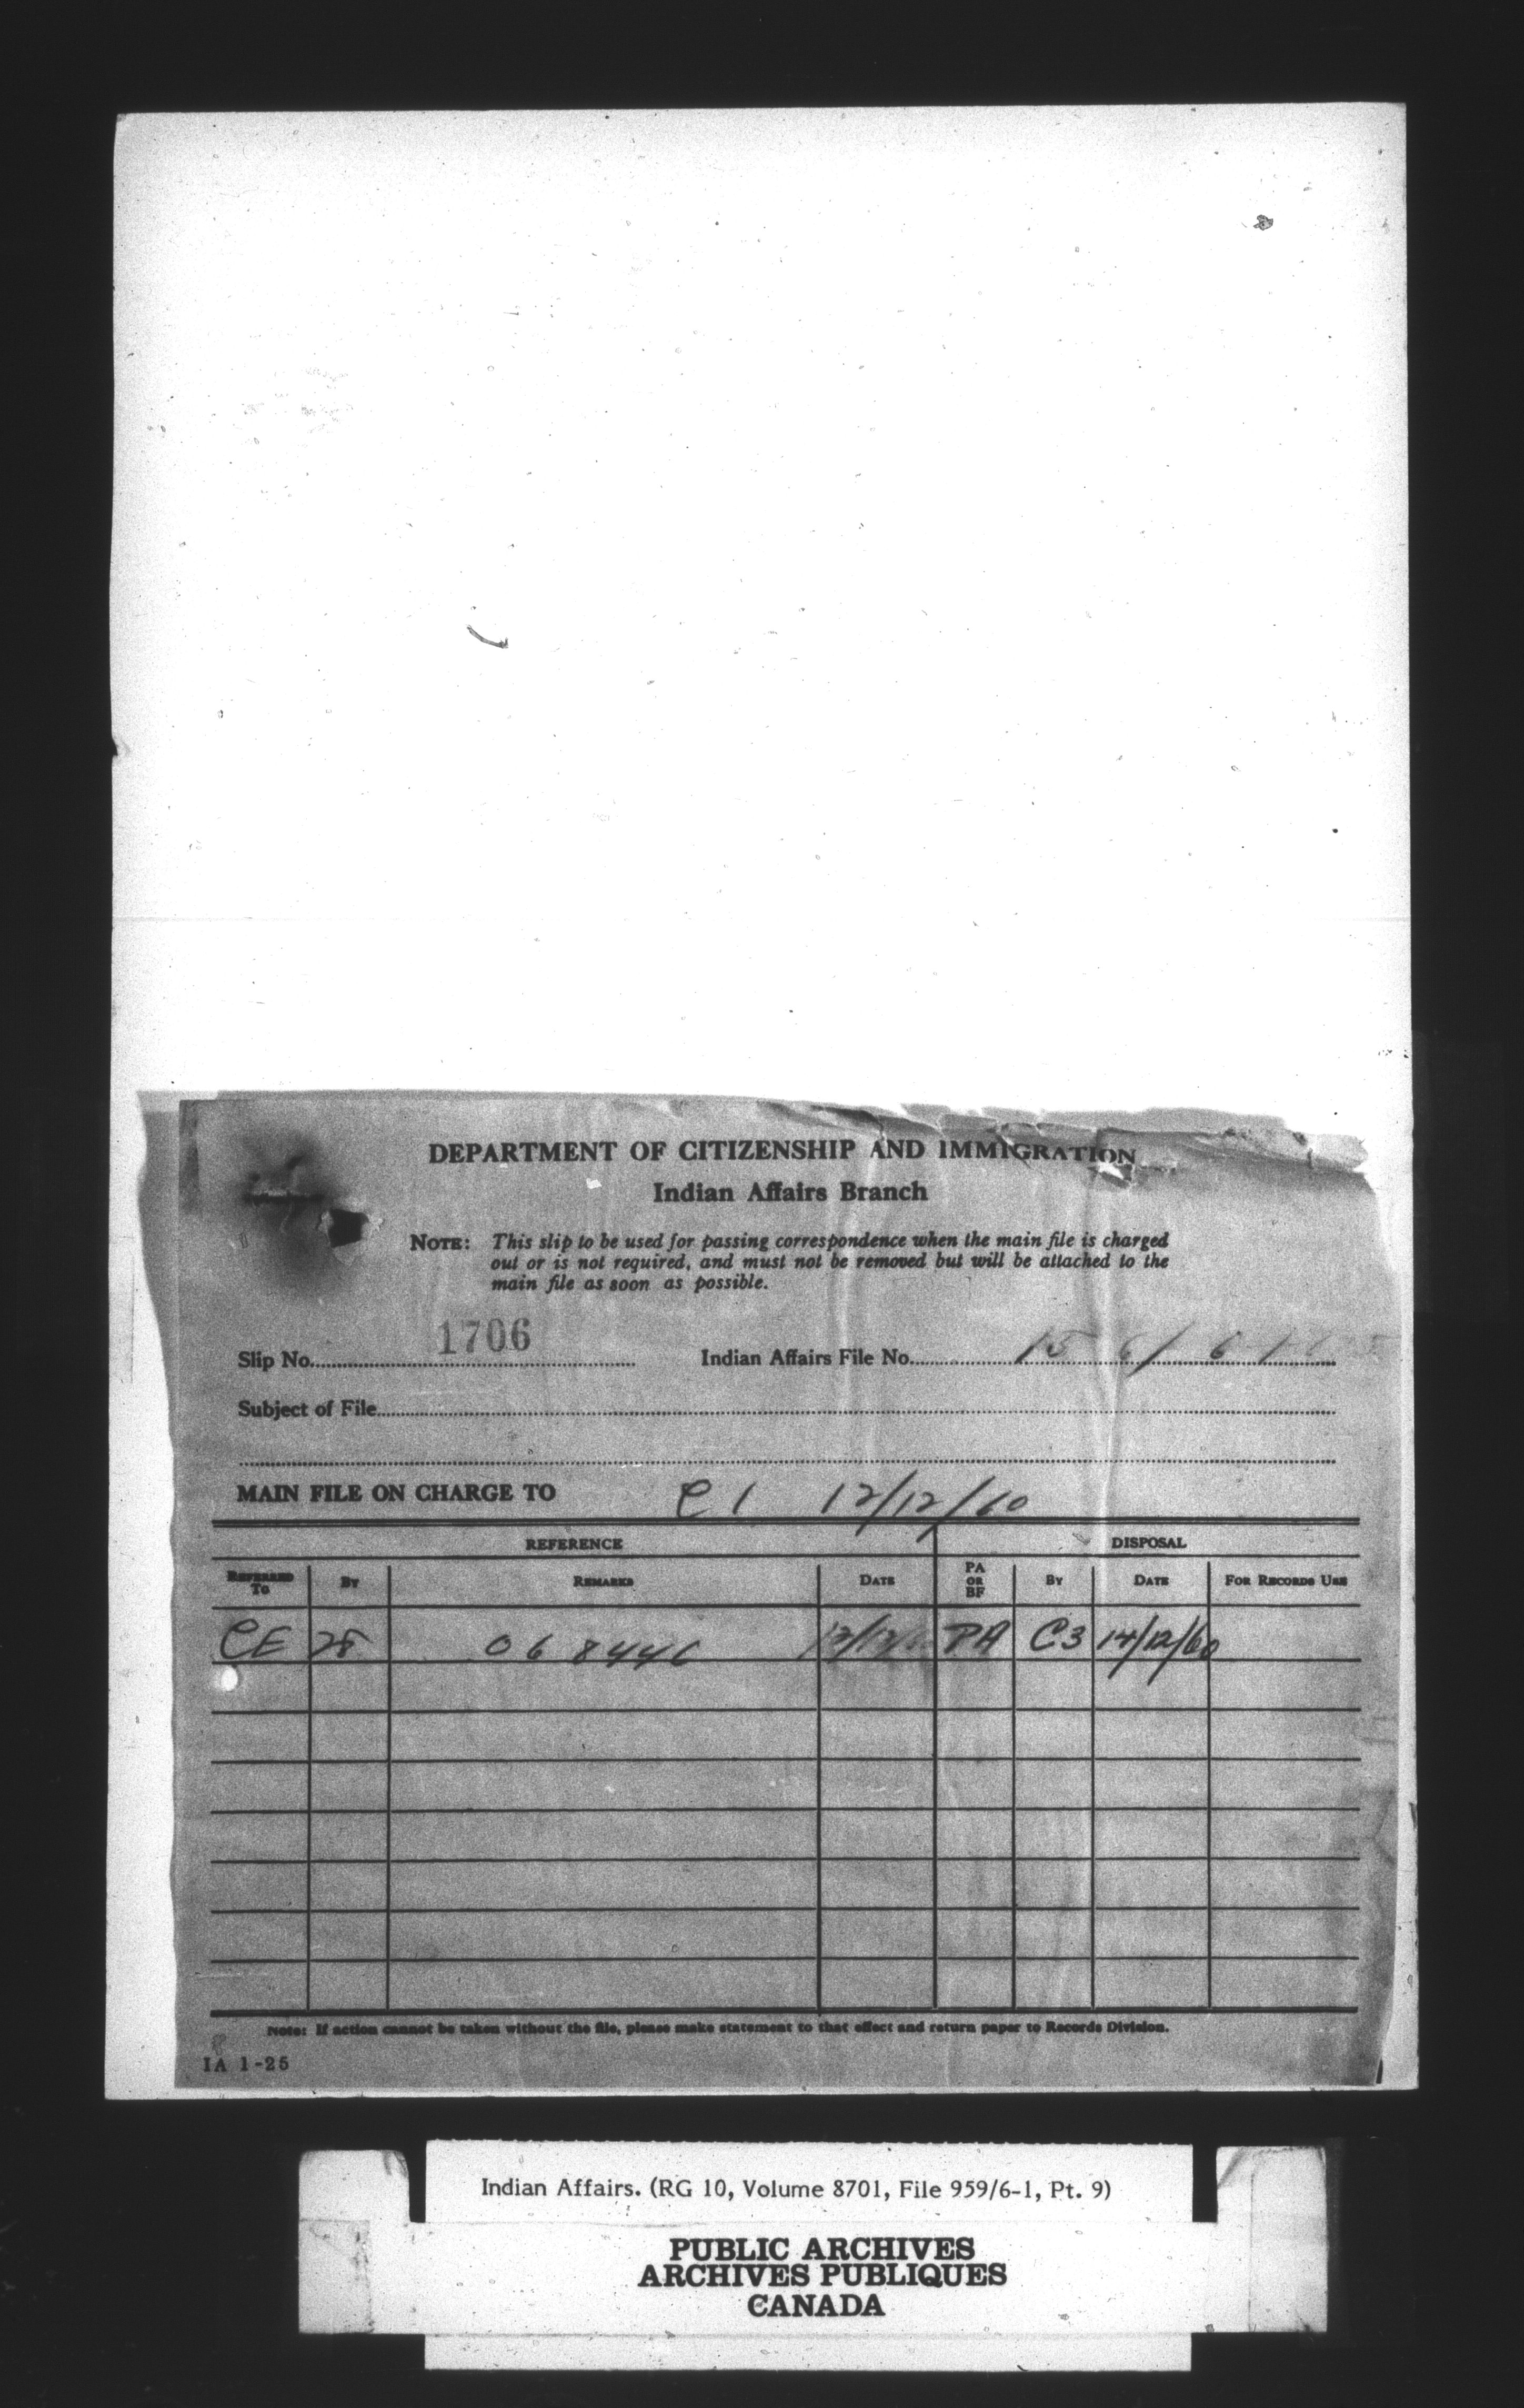 DEPARTMENT OF CITIZENSHIP AND IMMIGRATION
Indian Affairs Branch
NOTE: This slip to be used for passing correspondence when the main file is charged
out or is not required, and must not be removed but will be attached to the
main file as soon as possible.
Slip No. 1706 Indian Affairs File No.
Subject of File
MAIN FILE ON CHARGE TO C1 12/12/60
REFERENCE DISPOSAL
REFERRED TO BY REMARKS DATE PA OR BF BY DATE FOR RECORDS USE
CE 28 068446 PA C3 14/12/60
Note: If action cannot be taken without the file, please make statement to that effect and return paper to Records Division.
IA 1-25
Indian Affairs. (RG 10, Volume 8701, File 959/6-1, Pt. 9)
PUBLIC ARCHIVES
ARCHIVES PUBLIQUES
CANADA